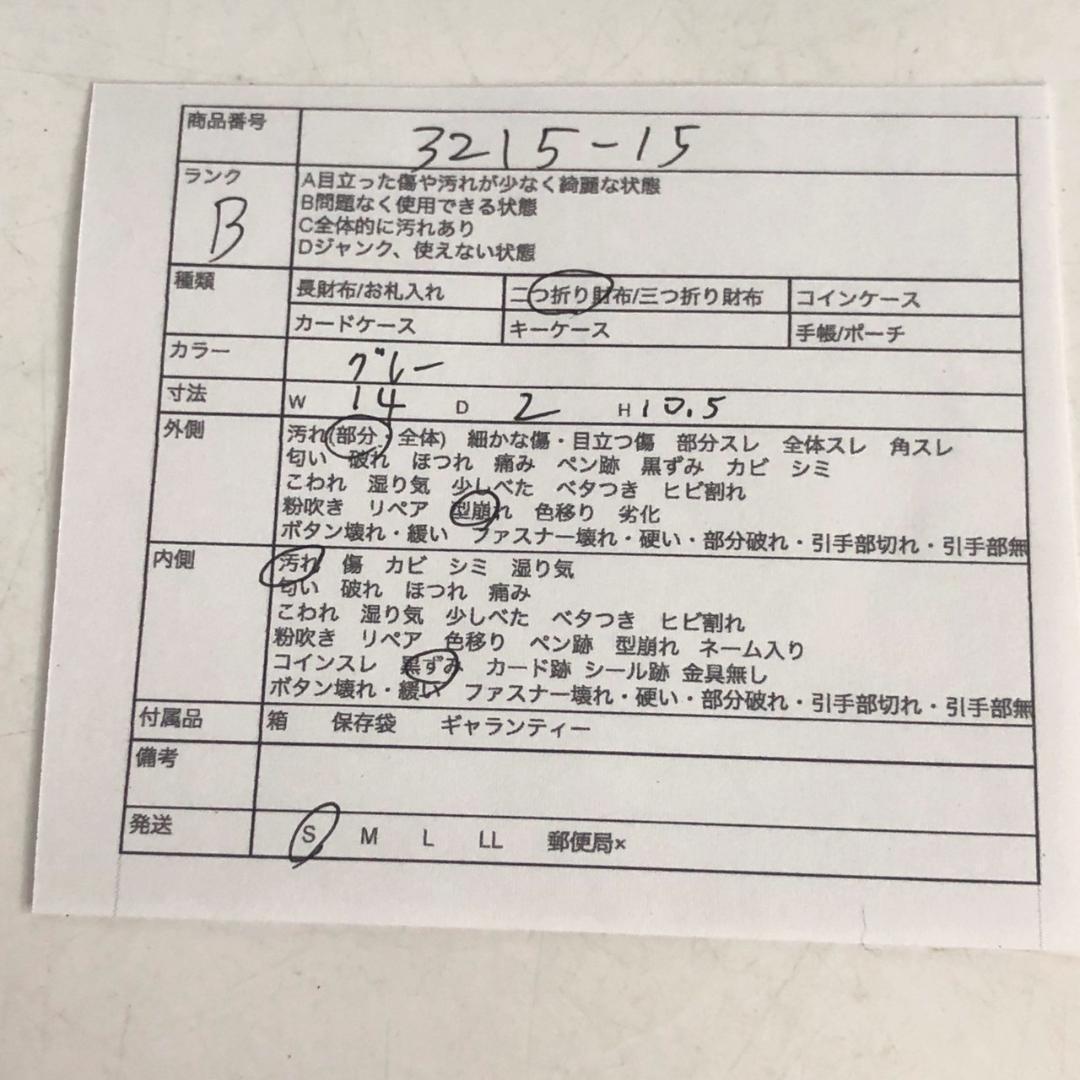 商品番号 3215-15
ランク B
A目立った傷や汚れが少なく綺麗な状態
B問題なく使用できる状態
C全体的に汚れあり
Dジャンク、使えない状態
種類
長財布/お札入れ 二つ折り財布/三つ折り財布 コインケース
カードケース キーケース 手帳/ポーチ
カラー グレー
寸法 W 14 D 2 H 10.5
外側
汚れ(部分・全体) 細かな傷・目立つ傷 部分スレ 全体スレ 角スレ
匂い 破れ ほつれ 痛み ペン跡 黒ずみ カビ シミ
こわれ 湿り気 少しべた ベタつき ヒビ割れ
粉吹き リペア 型崩れ 色移り 劣化
ボタン壊れ・緩い ファスナー壊れ・硬い・部分破れ・引手部切れ・引手部無
内側
汚れ 傷 カビ シミ 湿り気
匂い 破れ ほつれ 痛み
こわれ 湿り気 少しべた ベタつき ヒビ割れ
粉吹き リペア 色移り ペン跡 型崩れ ネーム入り
コインスレ 黒ずみ カード跡 シール跡 金具無し
ボタン壊れ・緩い ファスナー壊れ・硬い・部分破れ・引手部切れ・引手部無
付属品 箱 保存袋 ギャランティー
備考
発送 S M L LL 郵便局×